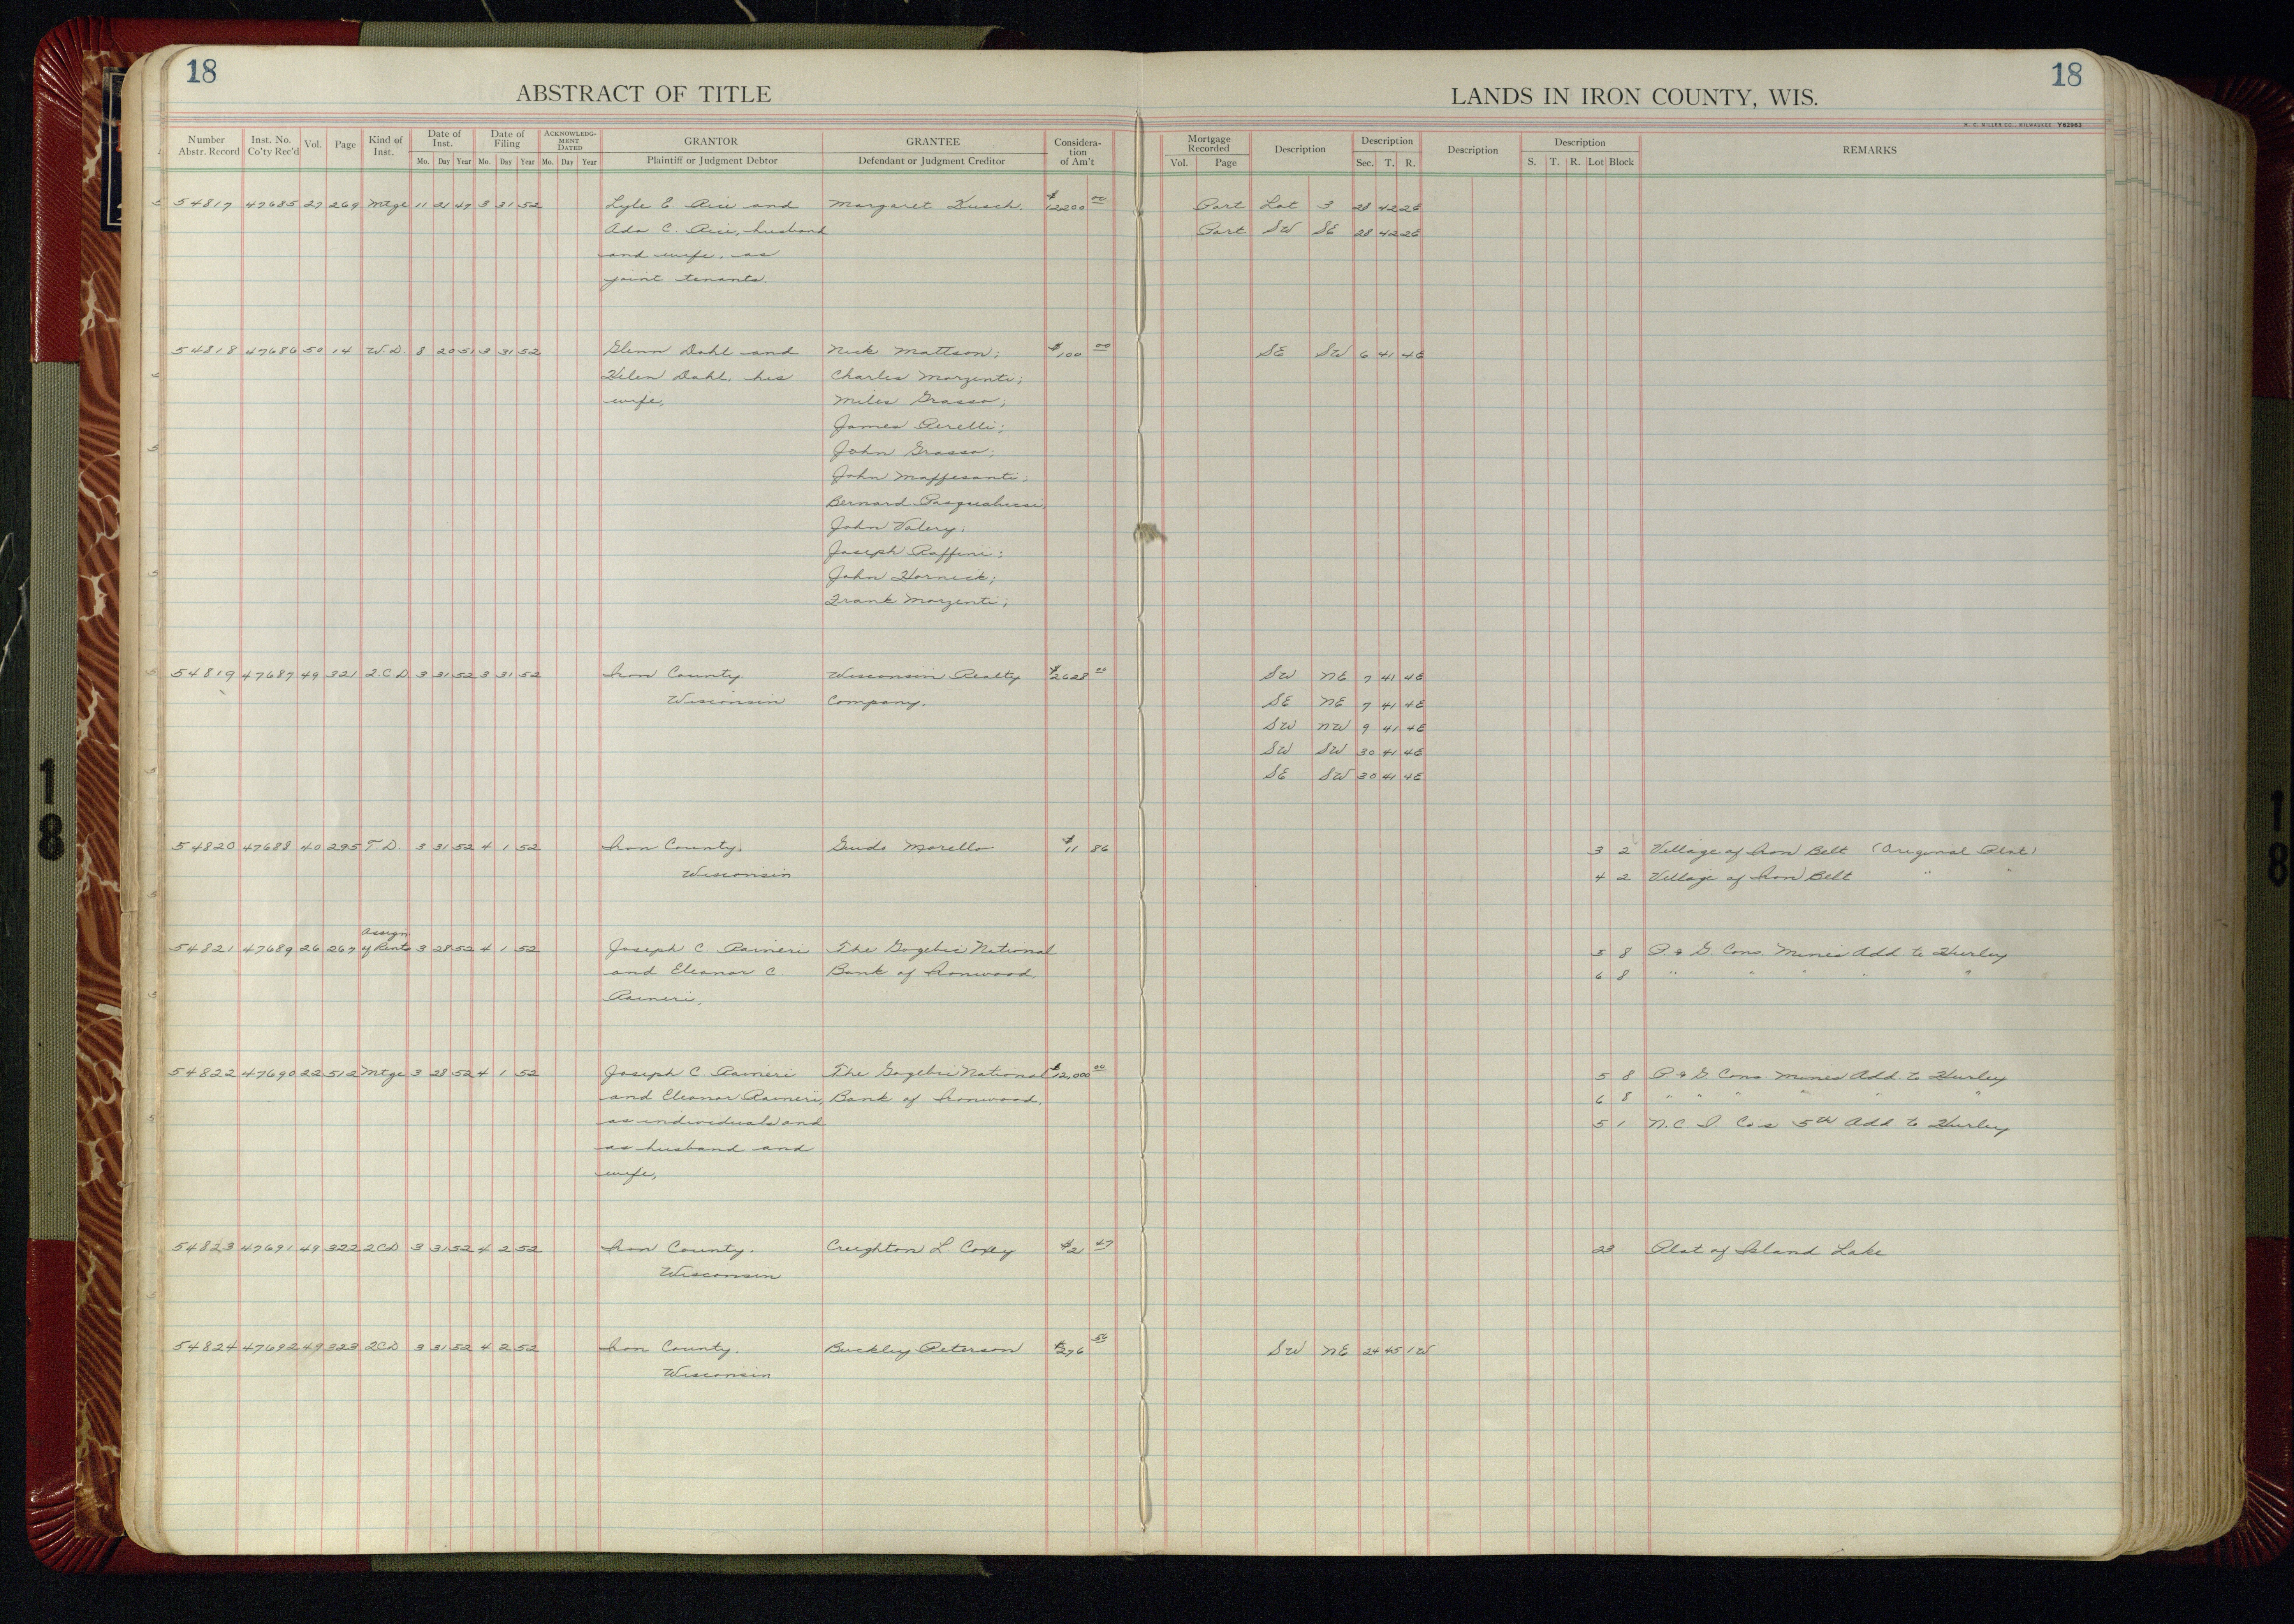 18
ABSTRACT OF TITLE
LANDS IN IRON COUNTY, WIS.
18
H. C. MILLER CO., MILWAUKEE Y62963
Number Abstr. Record Inst. No. Co'ty Rec'd Vol. Page Kind of Inst. Date of Inst. Mo. Day Year Date of Filing Mo. Day Year ACKNOWLEDGMENT DATED Mo. Day Year GRANTOR Plaintiff or Judgment Debtor GRANTEE Defendant or Judgment Creditor Consideration of Am't Mortgage Recorded Vol. Page Description Description Sec. T. R. Description Description S. T. R. Lot Block REMARKS
54817 47685 27 269 Mtge 11 21 49 3 31 52 Lyle E. and Margaret Kusch. $12200 00 Part Lot 3 28 42 2E
Ada C. husband Part SW SE 28 42 2E
and wife, as
joint tenants.
54818 47686 50 14 W.D. 8 20 51 3 31 52 Glenn Dahl and Nick Mattson; $100 00 SE SW 6 41 4E
Helen Dahl, his Charles Marzenti;
wife, Miles Grasso;
James Perelli;
John Grasso;
John Maffesanti;
Bernard Pasqualucci
John Valery;
Joseph Raffini;
John Hornick;
Frank Marzenti;
54819 47687 49 321 2.C.D. 3 31 52 3 31 52 Iron County Wisconsin Realty $2628 00 SW NE 7 41 4E
Wisconsin Company. SE NE 7 41 4E
SW NW 9 41 4E
SW SW 30 41 4E
SE SW 30 41 4E
54820 47688 40 295 T.D. 3 31 52 4 1 52 Iron County, Guido Morello $11 86 3 2 Village of Iron Belt (Original Plat)
Wisconsin 4 2 Village of Iron Belt " "
54821 47689 26 267 Assign of Rents 3 28 52 4 1 52 Joseph C. Raineri The Gogebic National 5 8 P. & G. Cons. Mines Add. to Hurley
and Eleanor C. Bank of Ironwood, 6 8 " " " " "
Raineri,
54822 47690 22 512 Mtge 3 28 52 4 1 52 Joseph C. Raineri The Gogebic National $12,000 00 5 8 P. & G. Cons Mines Add. to Hurley
and Eleanor Raineri, Bank of Ironwood, 6 8 " " " " " "
as individuals and 5 1 N.C.I. Co's 5th Add. to Hurley
as husband and
wife,
54823 47691 49 322 2CD 3 31 52 4 2 52 Iron County. Creighton L. $2 47 23 Plat of Island Lake
Wisconsin
54824 47692 49 323 2CD 3 31 52 4 2 52 Iron County. Buckley Peterson $276 SW NE 24 45 1W
Wisconsin
18
18